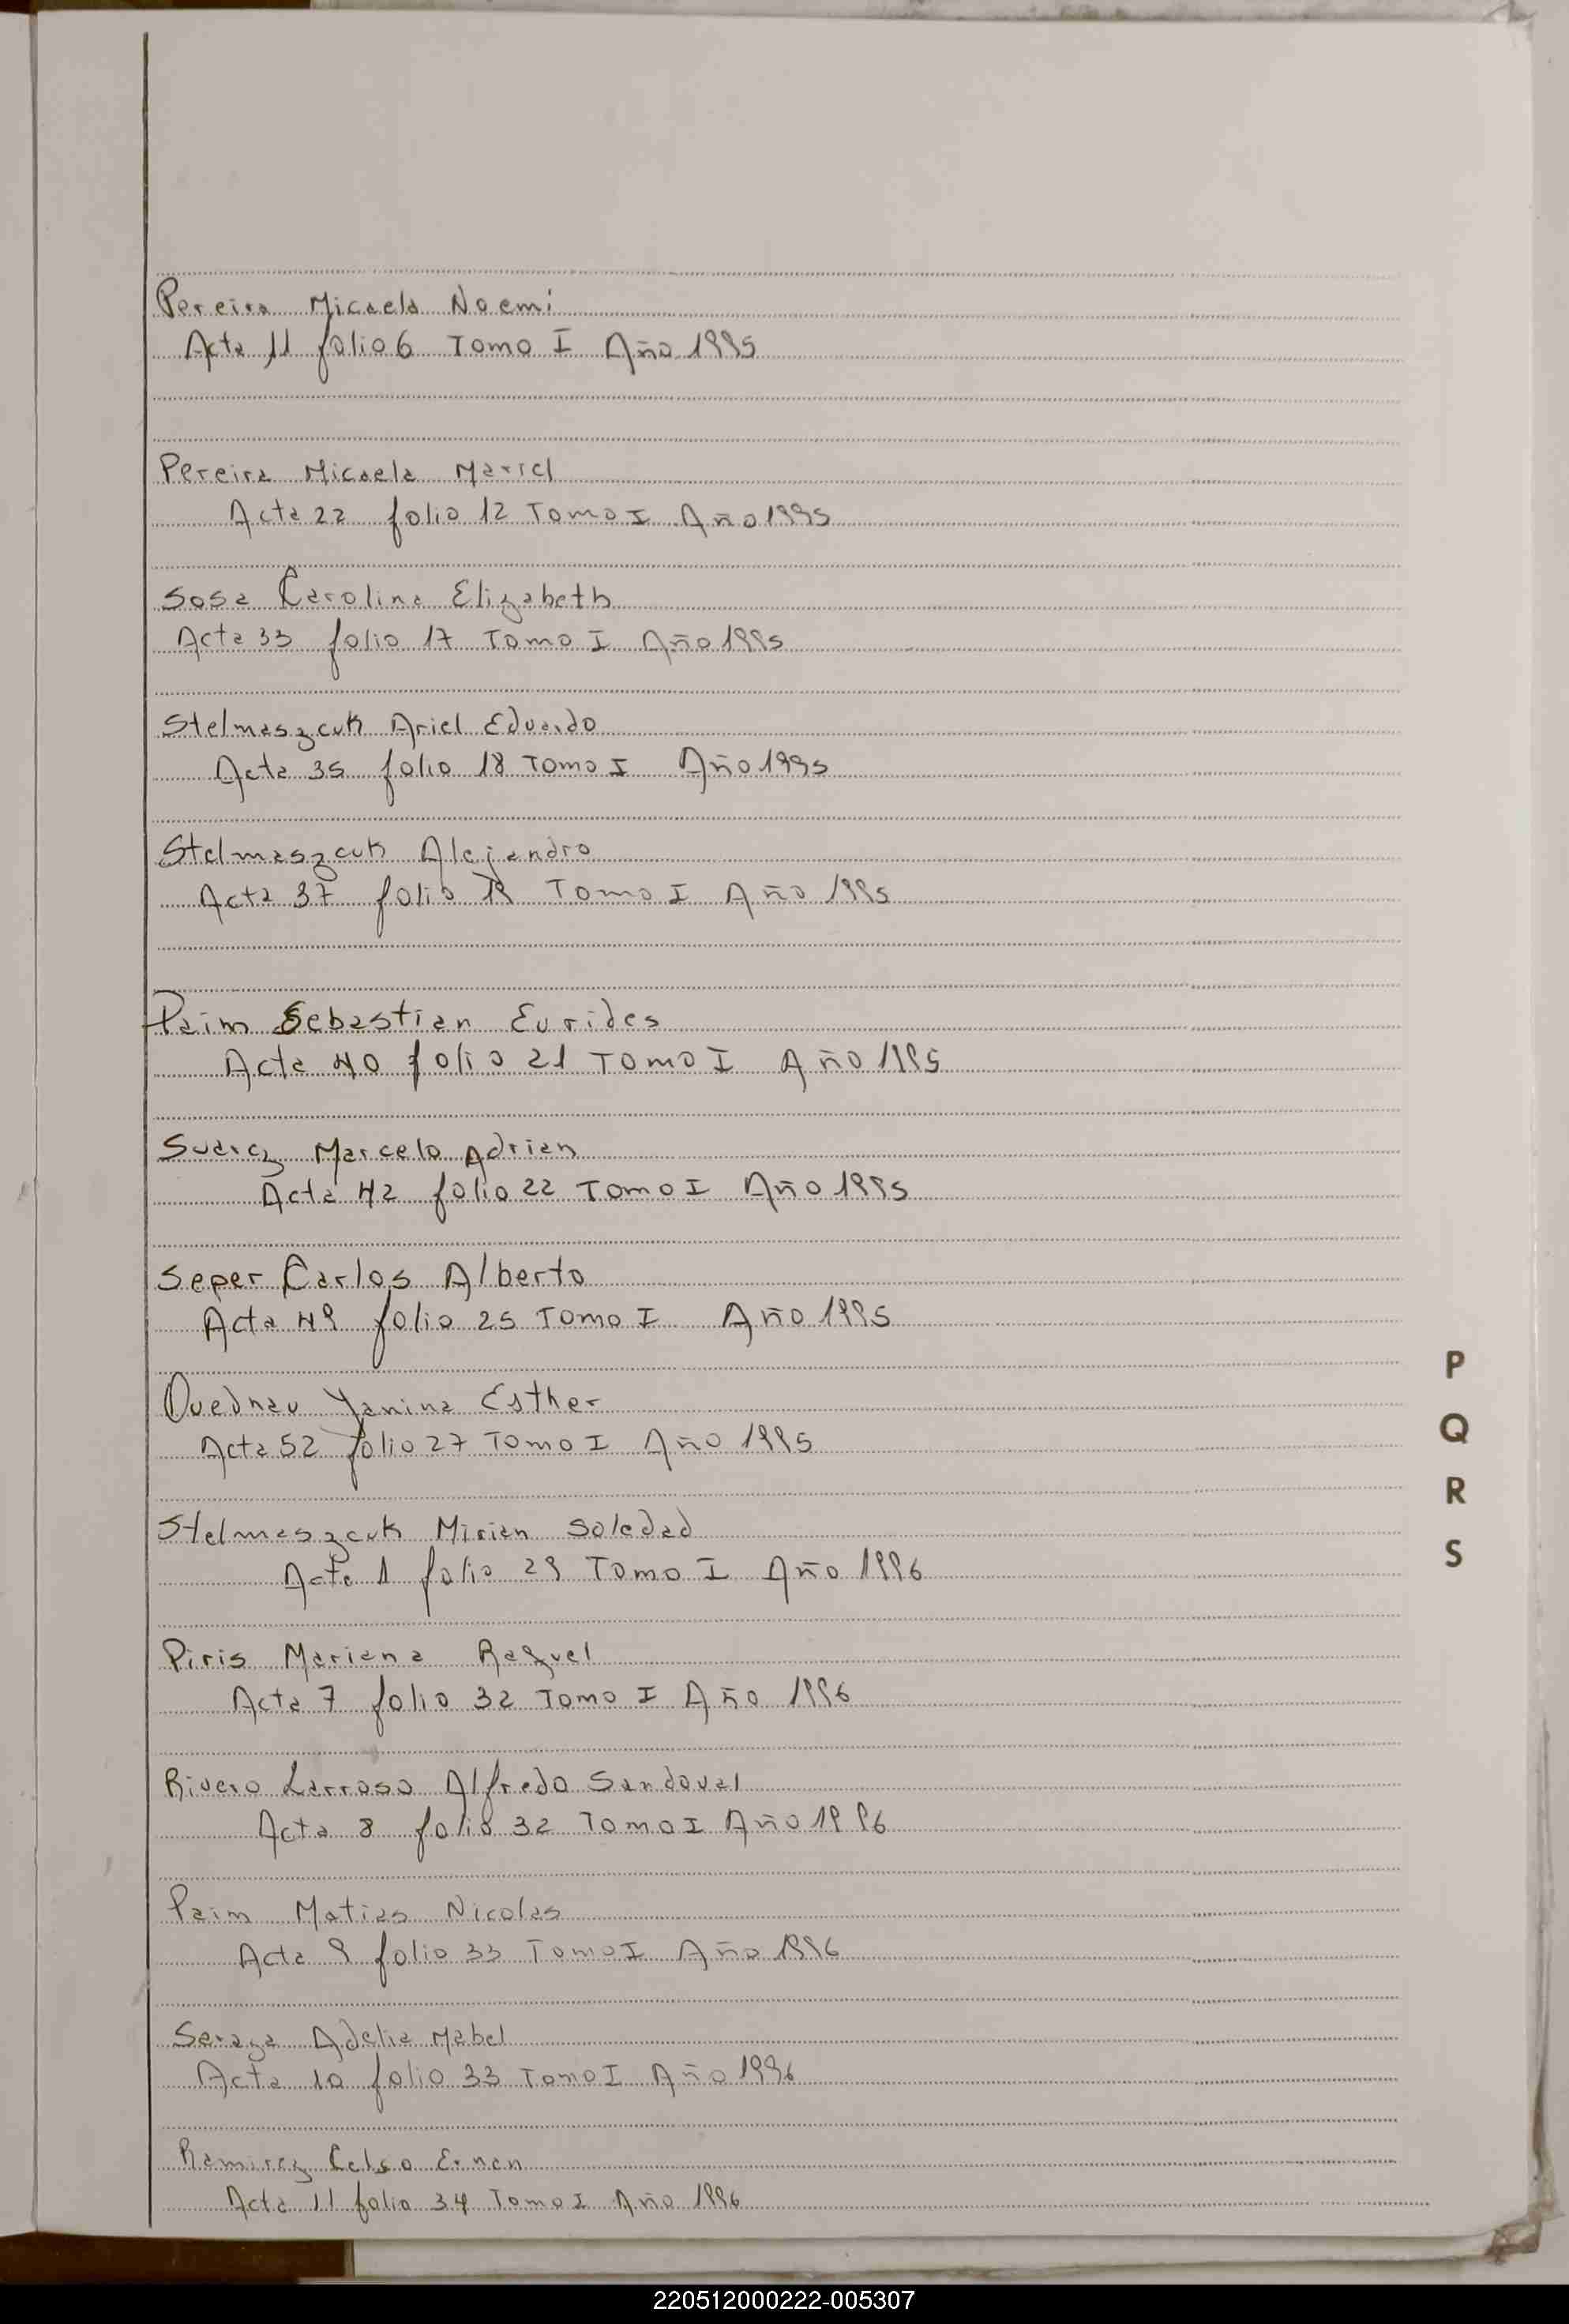 Pereira Micaela Noemi
Acta 11 folio 6 Tomo I Año 1995
Pereira Micaela Mariel
Acta 22 folio 12 Tomo I Año 1995
Sosa Carolina Elizabeth
Acta 33 folio 17 Tomo I Año 1995
Stelmaszcuk Ariel Eduardo
Acta 35 folio 18 Tomo I Año 1995
Stelmaszcuk Alejandro
Acta 37 folio Tomo I Año 1995
Paim Sebastian Eurides
Acta 40 folio 21 Tomo I Año 1995
Suarez Marcelo Adrian
Acta 42 folio 22 Tomo I Año 1995
Seper Carlos Alberto
Acta 49 folio 25 Tomo I Año 1995
Quednau Yanina Esther
Acta 52 folio 27 Tomo I Año 1995
Stelmaszcuk Mirian Soledad
Acta 1 folio 29 Tomo I Año 1996
Piris Mariana Raquel
Acta 7 folio 32 Tomo I Año 1996
Rivero Larroso Alfredo Sandoval
Acta 8 folio 32 Tomo I Año 1996
Paim Matias Nicolas
Acta 9 folio 33 Tomo I Año 1996
Adelia Mabel
Acta 10 folio 33 Tomo I Año 1996
Ramirez Celso
Acta 11 folio 34 Tomo I Año 1996
P
Q
R
S
220512000222-005307